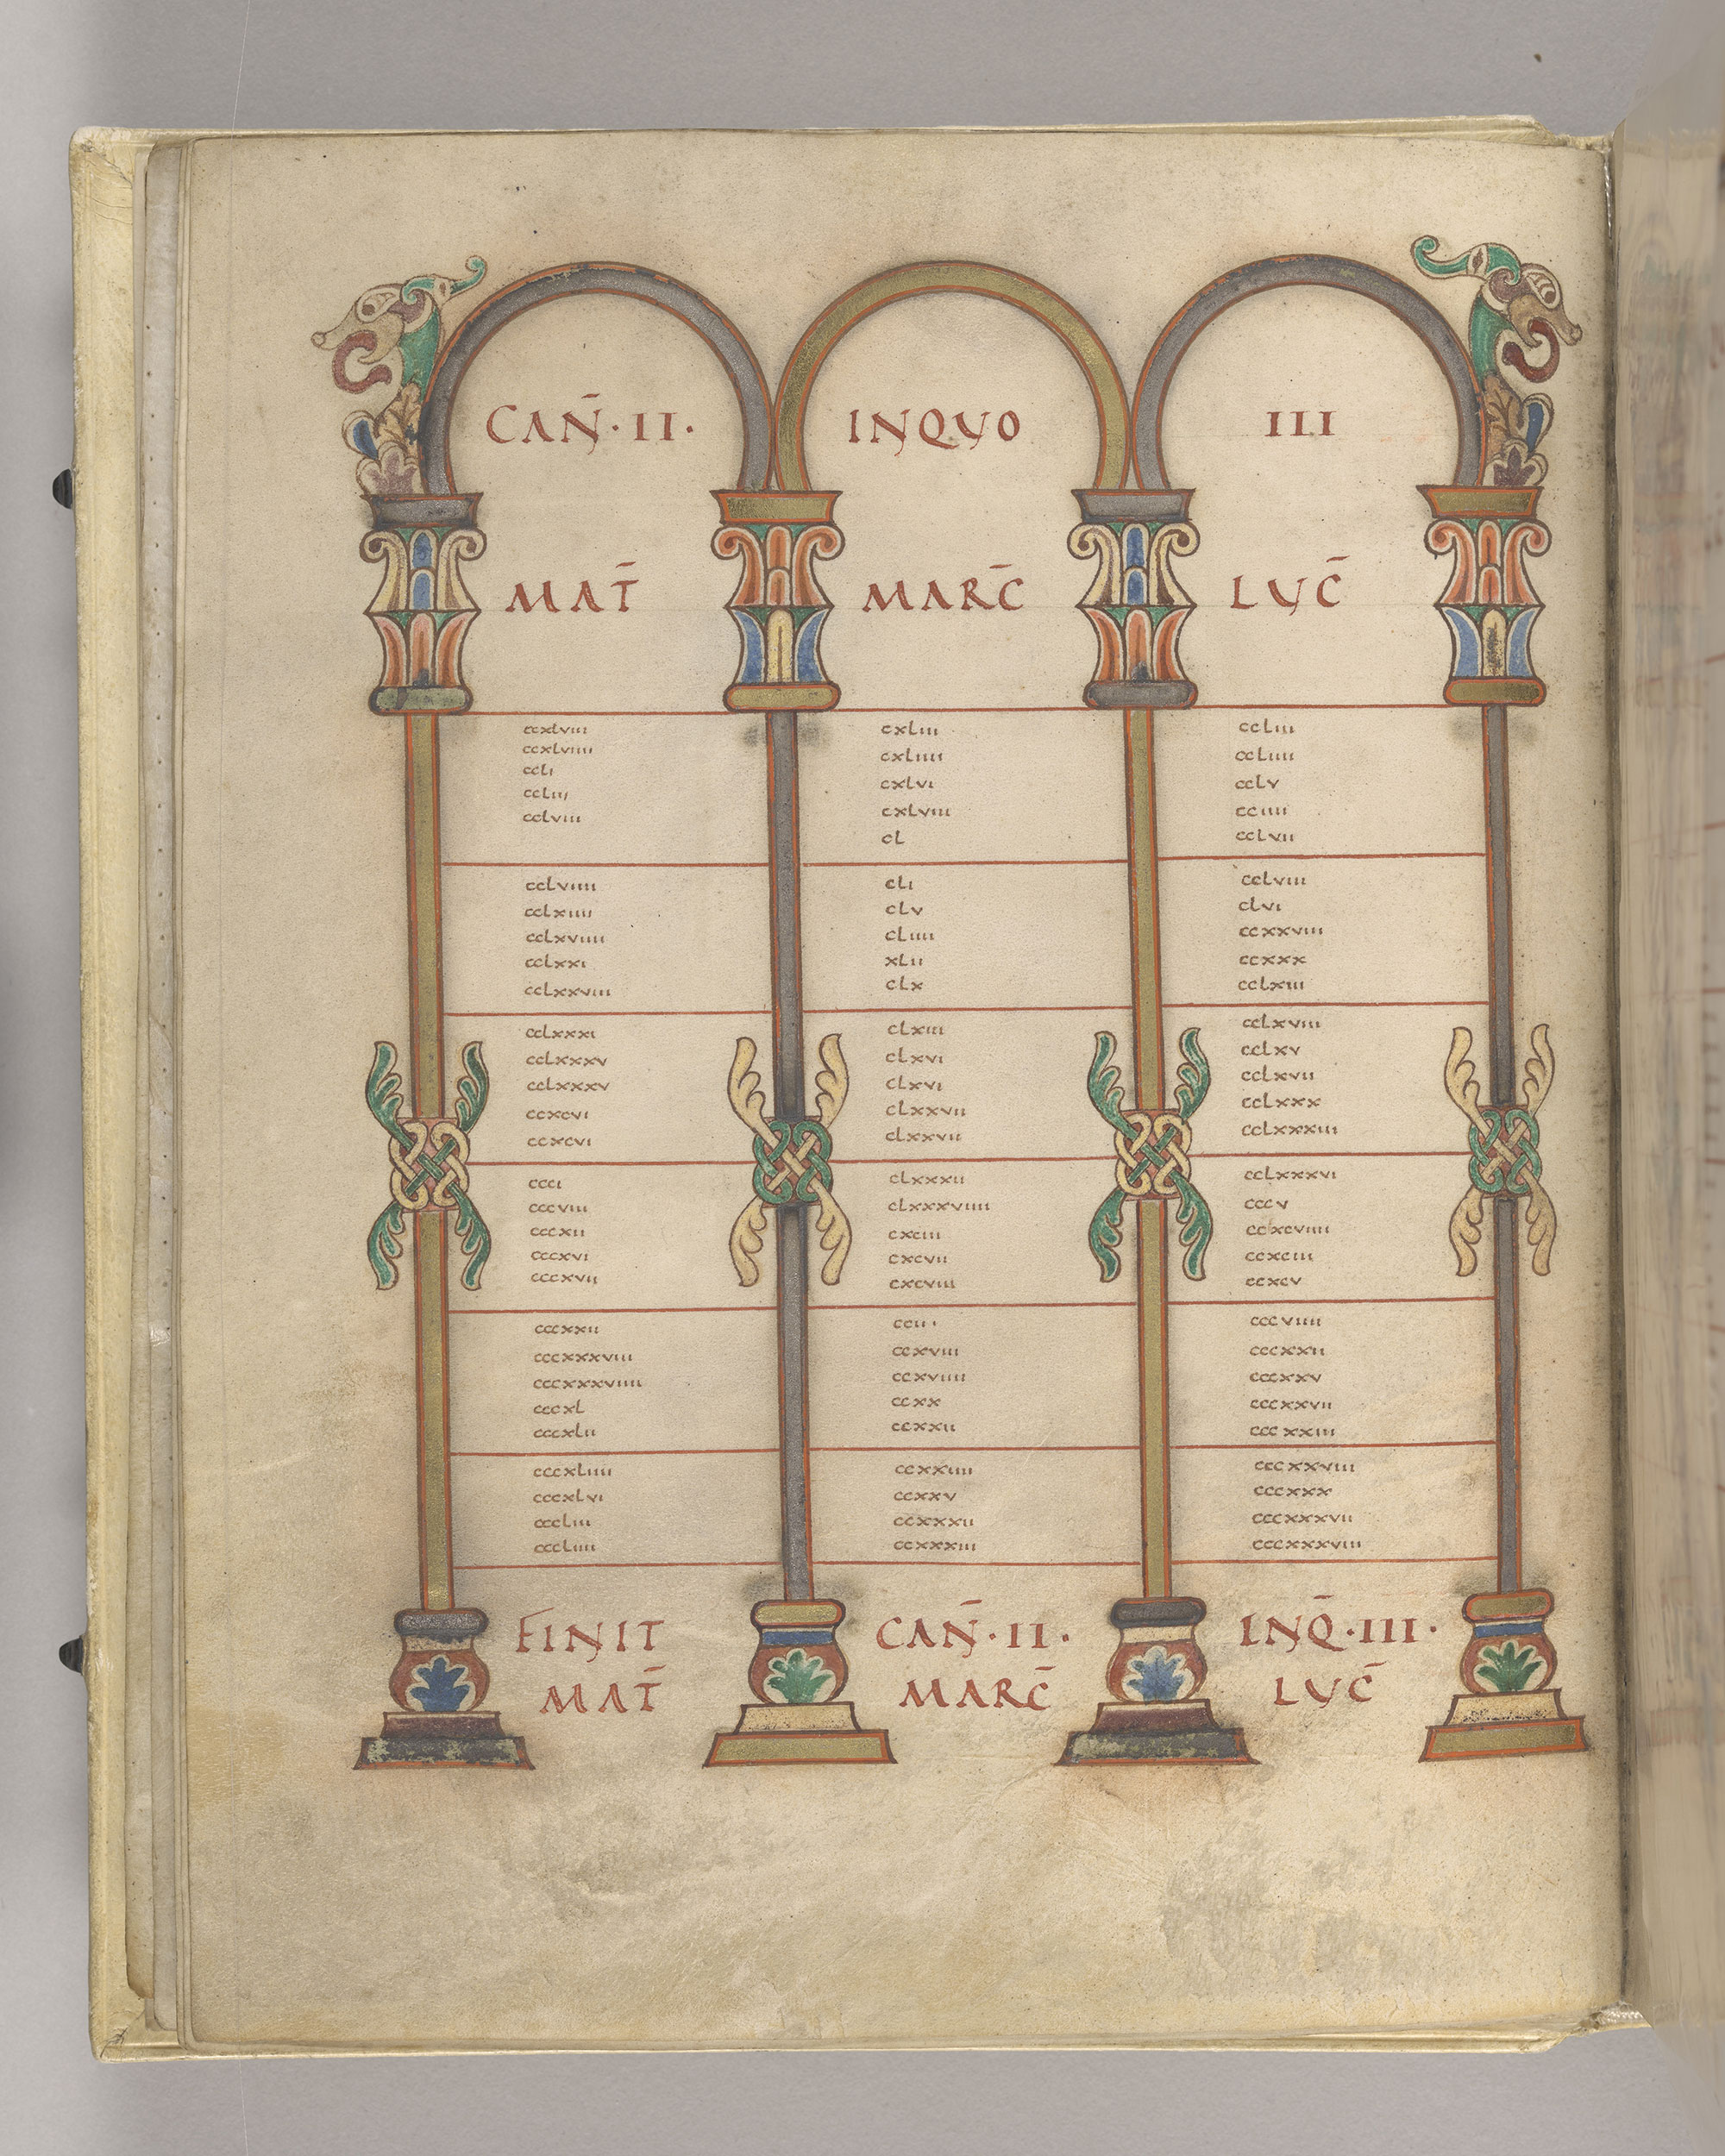 CAN̄·II· INQUO III
MAT̄ MARC̄ LUC̄
ccxlviii cxliii ccliii
ccxlviiii cxliiii ccliiii
ccli cxlvi cclv
ccliii cxlviii cciiii
cclviii cl cclvii
cclviiii cli cclviii
cclxiiii clv clvi
cclxviiii cliiii ccxxviii
cclxxi xlii ccxxx
cclxxviii clx cclxiii
cclxxxi clxiii cclxviii
cclxxxv clxvi cclxv
cclxxxv clxvi cclxvii
ccxcvi clxxvii cclxxx
ccxcvi clxxvii cclxxxiiii
ccci clxxxii cclxxxvi
cccviii clxxxviiii cccv
cccxii cxciii ccxcviiii
cccxvi cxcvii ccxciii
cccxvii cxcviii ccxcv
cccxxii cccviiii
cccxxxviii ccxviii cccxxii
cccxxxviiii ccxviiii cccxxv
cccxl ccxx cccxxvii
cccxlii ccxxii cccxxiii
cccxliiii ccxxiiii cccxxviii
cccxlvi ccxxv cccxxx
cccliii ccxxxii cccxxxvii
cccliiii ccxxxiii cccxxxviii
FINIT CAN̄·II· INQ̄·III·
MAT̄ MARC̄ LUC̄